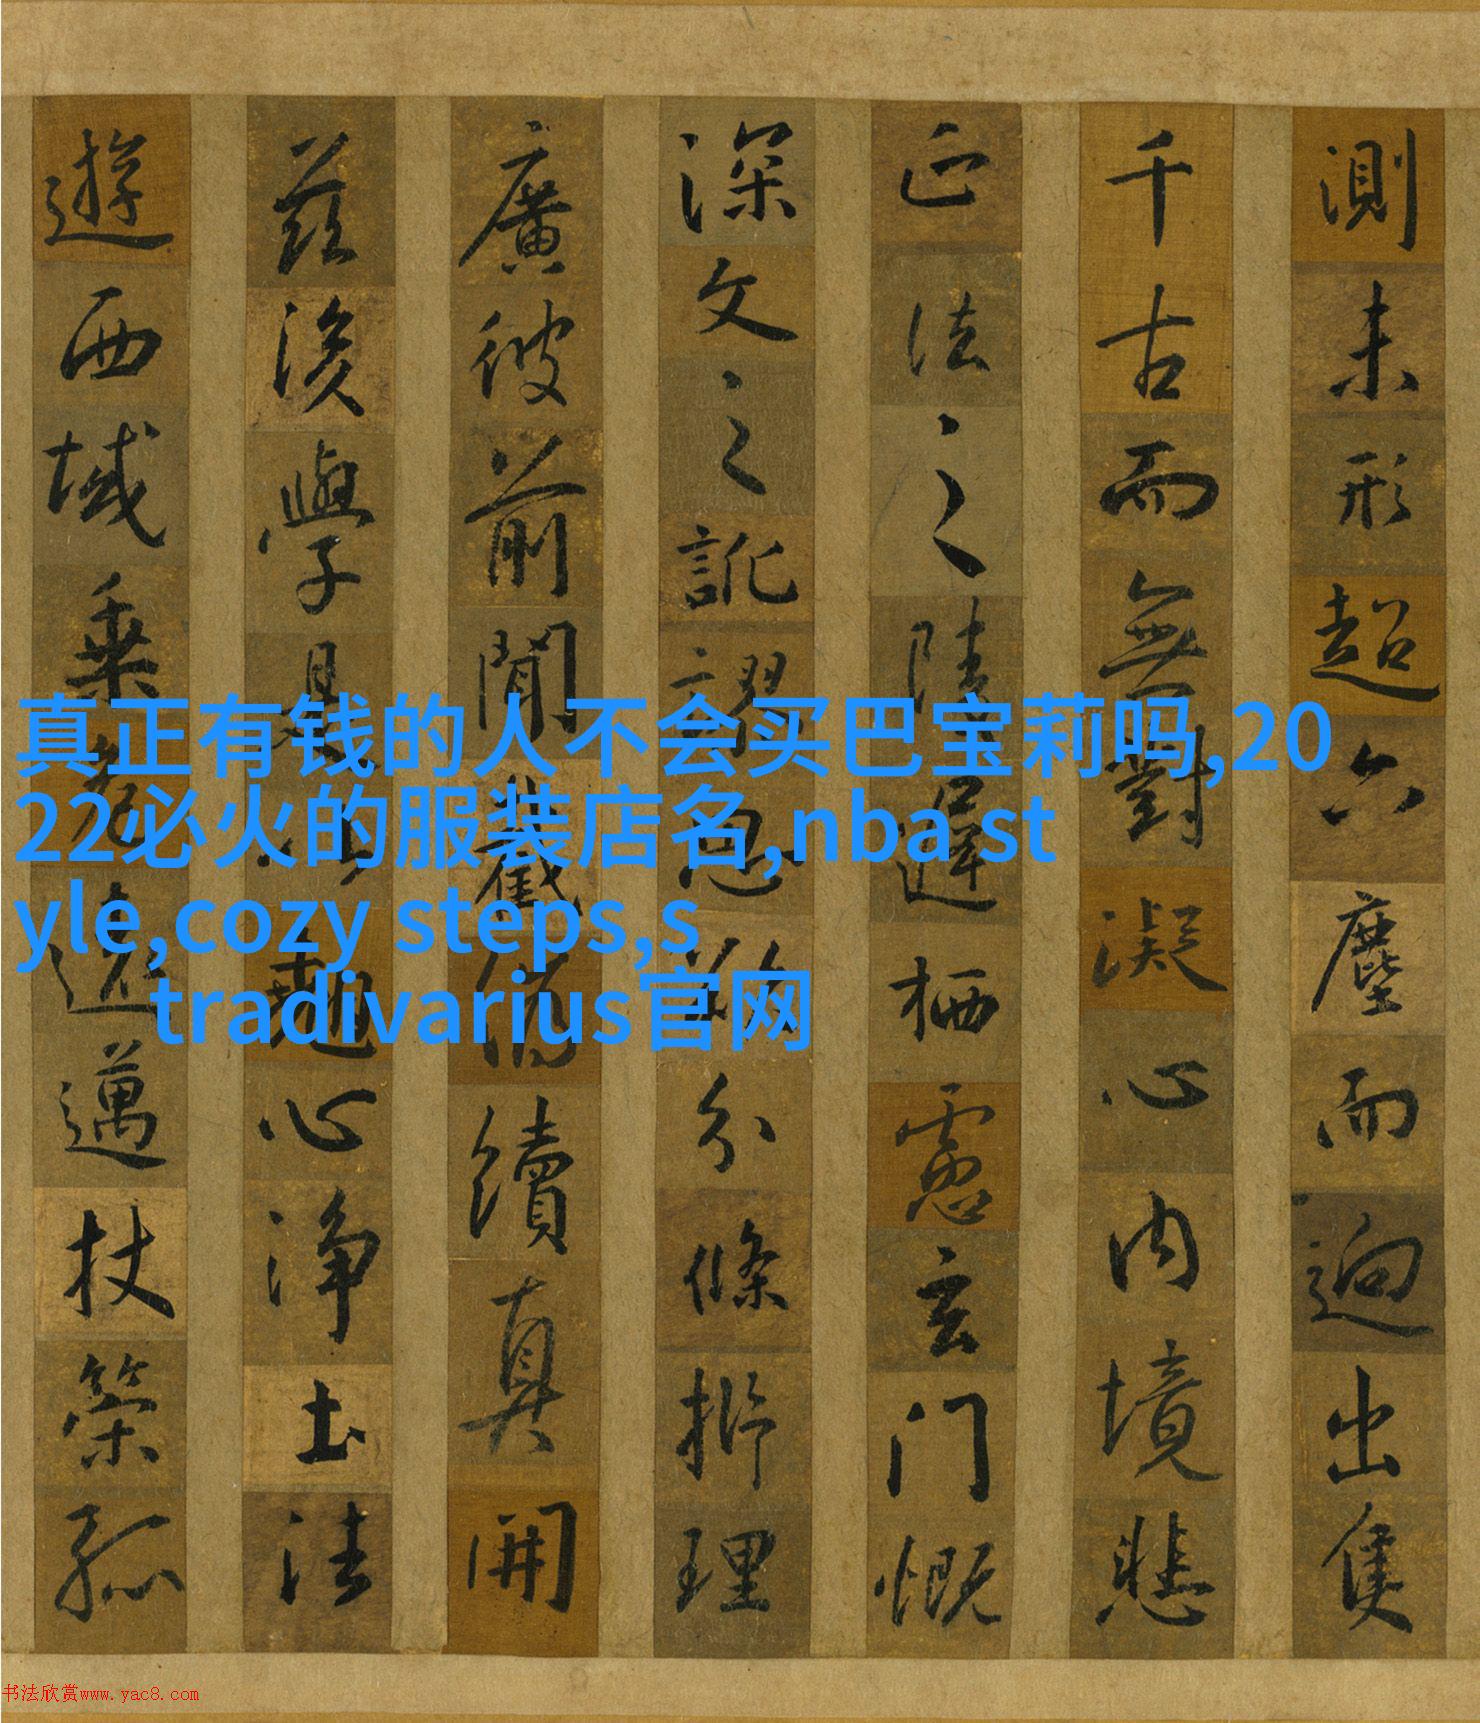 測未形超六塵而迥出隻
千古而無對凝心內境悲
正法之陵遲栖慮玄門慨
深文之訛謬思欲分條析理
廣彼前聞截偽續真開
茲後學是以翹心淨土法
遊西域乘危遠邁杖策孤
真正有钱的人不会买巴宝莉吗,20
22必火的服装店名,nba st
yle,cozy steps,s
tradivarius官网
书法欣赏www.yac8.com